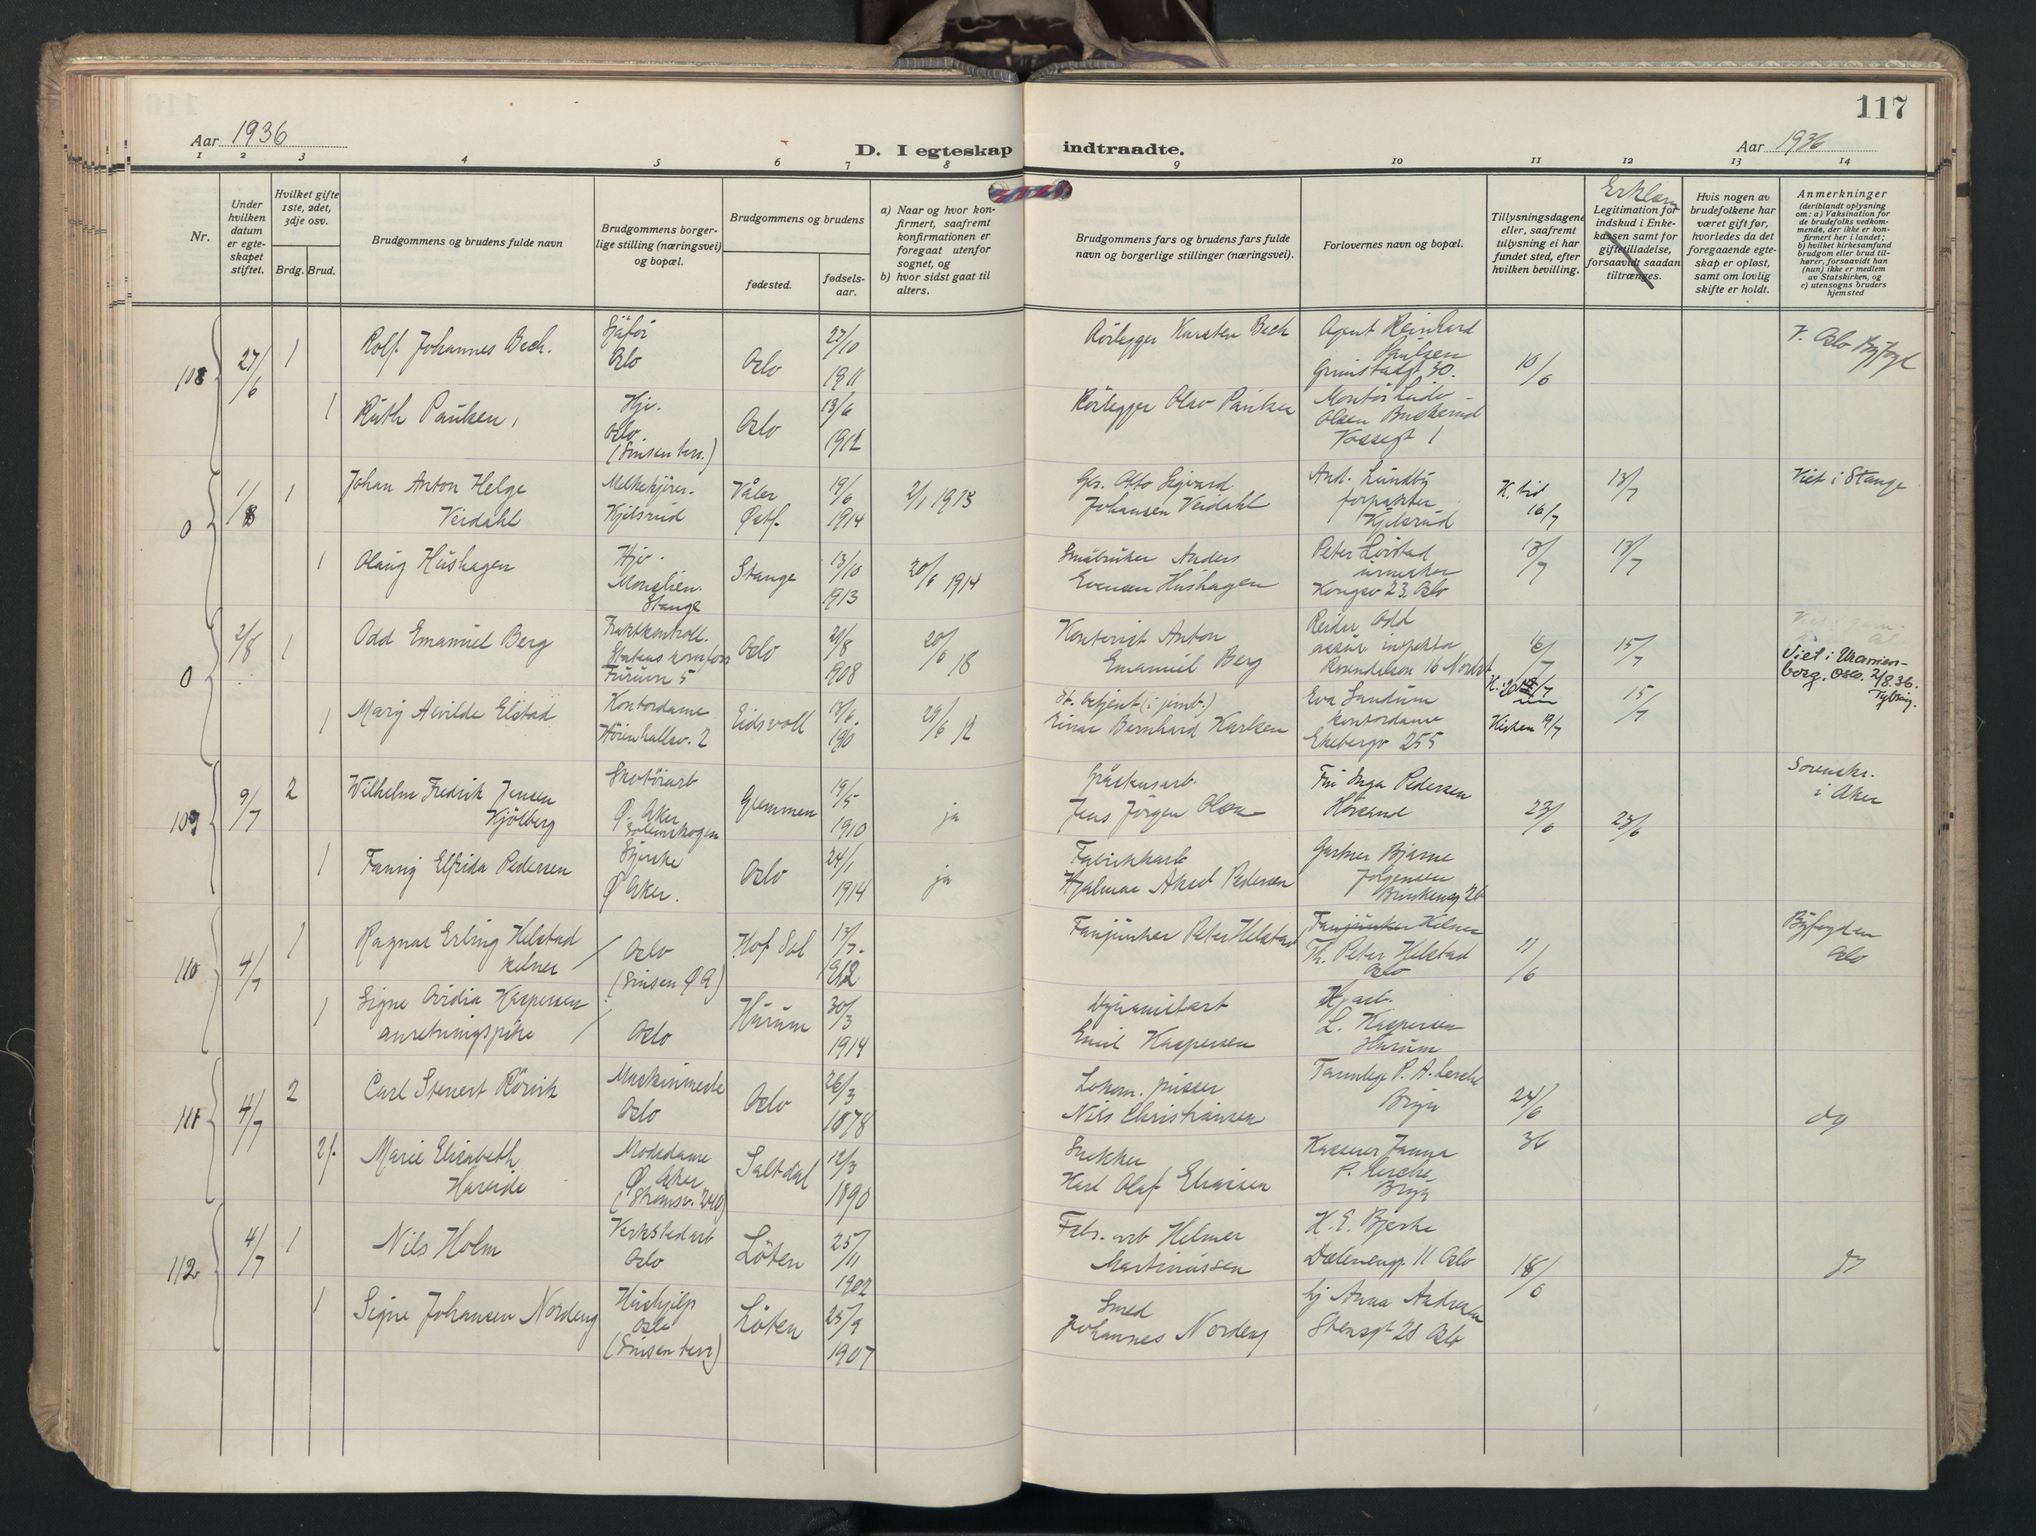 117
Aar 1936
D. I egteskap indtraadte.
Aar 1936
1 2 3 4 5 6 7 8 9 10 11 12 13 14
Nr.
Under hvilken datum er egteskapet stiftet.
Hvilket gifte 1ste, 2det, 3dje osv.
Brdg. Brud.
Brudgommens og brudens fulde navn
Brudgommens borgerlige stilling (næringsvei) og bopæl.
Brudgommens og brudens
fødested.
fødselsaar.
a) Naar og hvor konfirmert, saafremt konfirmationen er foregaat utenfor sognet, og
b) hvor sidst gaat til alters.
Brudgommens fars og brudens fars fulde navn og borgerlige stillinger (næringsvei).
Forlovernes navn og bopæl.
Tillysningsdagene eller, saafremt tillysning ei har fundet sted, efter hvilken bevilling.
Legitimation for indskud i Enkekassen samt for giftetilladelse, forsaavidt saadan tiltrænges.
Hvis nogen av brudefolkene har været gift før, hvorledes da det foregaaende egteskap er opløst, samt om lovlig skifte er holdt.
Anmerkninger
(deriblandt oplysning om: a) Vaksination for de brudefolks vedkommende, der ikke er konfirmert her i landet; b) hvilket kirkesamfund brudgom eller brud tilhører, forsaavidt han (hun) ikke er medlem av Statskirken, og c) utensogns bruders hjemsted
108 27/6 1 Rolf Johannes Bech. Sjåfør Oslo Oslo 22/10 1911 Rørlegger Karsten Bech Agent Reinhard Paulsen Grimstadgt 30. 10/6 Oslo Byfogd
1 Ruth Paulsen, Hjv. Oslo (Sinsen terr.) Oslo 13/6 1912 Rørlegger Olav Paulsen Montør Ludv. Olsen Buskerud Vossegt 1
0 1/8 1 Johan Anton Helge Veidahl Melkekjører Kjelsrud Våler Østf. 19/6 1914 Otto Sigvard Johansen Veidahl And. Lundby forpakter Kjelsrud 16/7 13/7 Viet i Stange
1 Olaug Hushagen Hjv. Stange Stange 13/10 1913 Småbruker Anders Evensen Hushagen Peter Lörstad urmaker Kongsv 23, Oslo 13/7 13/7
0 2/8 1 Odd Emanuel Berg Furum 5 Oslo 908 20/6 Kontorist Anton Emanuel Berg Reidar Odd 16/7 15/7 Viet i Uranienberg, Oslo 2/8.36.
1 Mary Alvilde Elstad Kontordame Eidsvoll 29/6 12 Einar Bernhard Karlsen Eva Sandum kontordame Ekebergv 255 Kirken 19/7 15/7
109 9/7 2 Wilhelm Fredrik Jensen Kjølberg Skotøiarb Ø. Aker Glemmen 19/5 1910 ja Jens Jørgen Olsen Frk Inga Pedersen 23/6 23/6 Sorenskr. i Aker
1 Fanny Elfrida Pedersen Bjerke Ø Aker. Oslo 24/1 1914 ja Fabrikkarb Hjalmar Aksel Pedersen Gartner Bjarne Jørgensen
110 4/7 1 Ragnar Erling Helstad kelner / Oslo (Sinsen Ø A) Hof Sol 13/7 1912 Fanjunker Peter Helstad Fanjunker Kelner Th. Peter Helstad Oslo 11/6 Byfogden Oslo
1 Signe Ovidia Kaspersen anretningspike / Oslo Hurum 30/3 1914 Dynamitarb Emil Kaspersen L. Kaspersen Hurum
111 4/7 2 Carl Stenert Rörvik Oslo Oslo 26/3 1878 Lokom. pusser Nils Christiansen Tannlege P. A. Lerche Bryn 24/6 36 do
2 Marie Elisabeth Hareide Motedame Ø Aker (Strömsv. 240) Saltdal 12/3 1890 Snekker Karl Olaf Eliassen Kasserer Janna P. Lerche Bryn
112 4/7 1 Nils Holm Verkstedarb Oslo Løten 25/11 1902 Fabr. arb Helmer Martinussen K. E. Bjerke Dælenengt. 11 Oslo 18/6
1 Signe Johansen Nordeng Hushjelp Oslo (Sinsen terr) Løten 25/9 1907 Smed Johannes Nordeng Anna Stensgt 28 Oslo